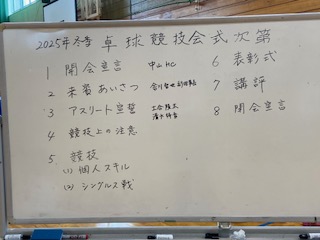 2025年冬季 卓球競技会式次第
1 開会宣言 中山HC
2 来賓あいさつ
3 アスリート宣誓
4 競技上の注意
5. 競技
(1) 個人スキル
(2) シングルス戦
6 表彰式
7 講評
8 閉会宣言